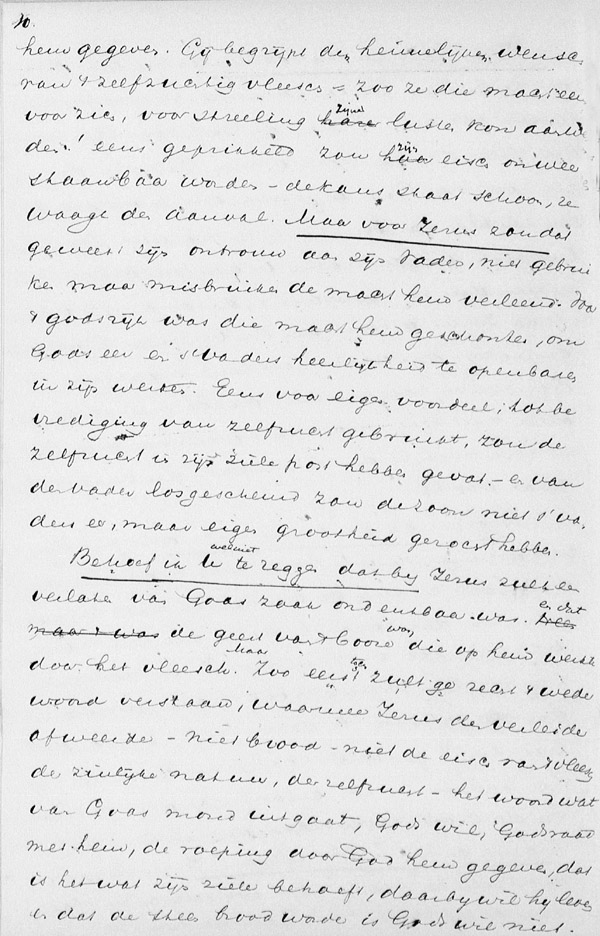 10.
hem gegeven. Gij begrijpt den heimelijken wensch
van 't zelfzuchtig vleesch = zoo ze die macht een
voor zich, voor streeling zijner lusten kon aanwen
den! eens geprikkeld zou zijn eisch onweer
staanbaar worden - de kans staat schoon, ze
waagt den aanval. Maar voor Jezus zou dat
geweest zijn ontrouw aan zijn Vader, niet gebrui
ken maar misbruiken de macht hem verleend. Voor
't godsrijk was die macht hem geschonken, om
Gods eer en 's vaders heerlijkheid te openbaren
in zijn werken. Eens voor eigen voordeel, tot be
vrediging van zelfzucht gebruikt, zou de
zelfzucht in zijn ziele post hebben gevat - en van
den vader losgescheurd zou de zoon niet 's va
ders eer, maar eigen grootheid gezocht hebben.
Behoef ik u wel niet te zeggen dat bij Jezus zulk een
verlaten van Gods zaak ondenkbaar was. en dat
maar 't was de geest van 't booze was die op hem werkte
door het vleesch. Maar Zoo eerst zult ge recht 't weder
woord verstaan, waarmee Jezus den verleider
afweerde - niet brood - niet de eisch van 't vleesch
de zinlijke natuur, de zelfzucht - het woord wat
van Gods mond uitgaat, Gods wil, Gods raad
met hem, de roeping door God hem gegeven, dat
is het wat zijn ziele behoeft, daarbij wil hij leven
en dat de steen brood worde is Gods wil niet.